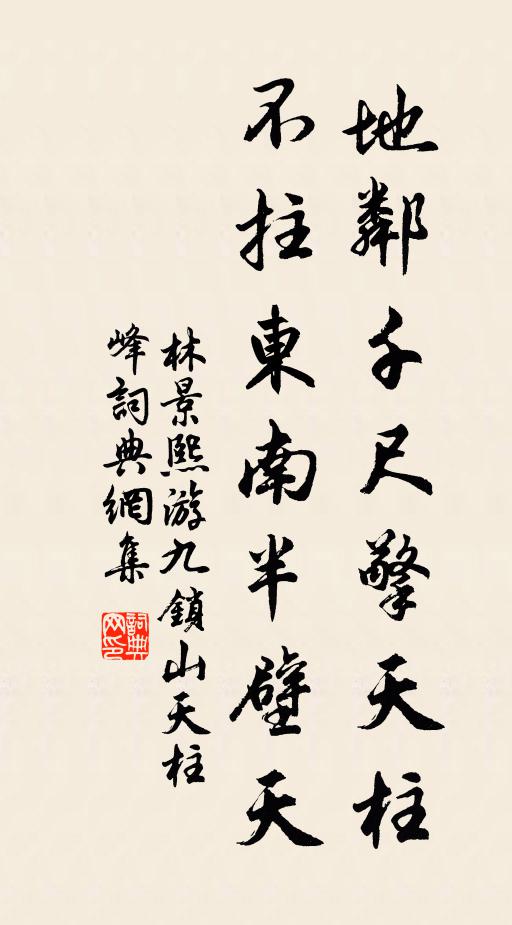 地鄰千尺擎天柱
不拄東南半壁天
林景熙游九鎖山天柱
峰詞典網集
詞典
网印